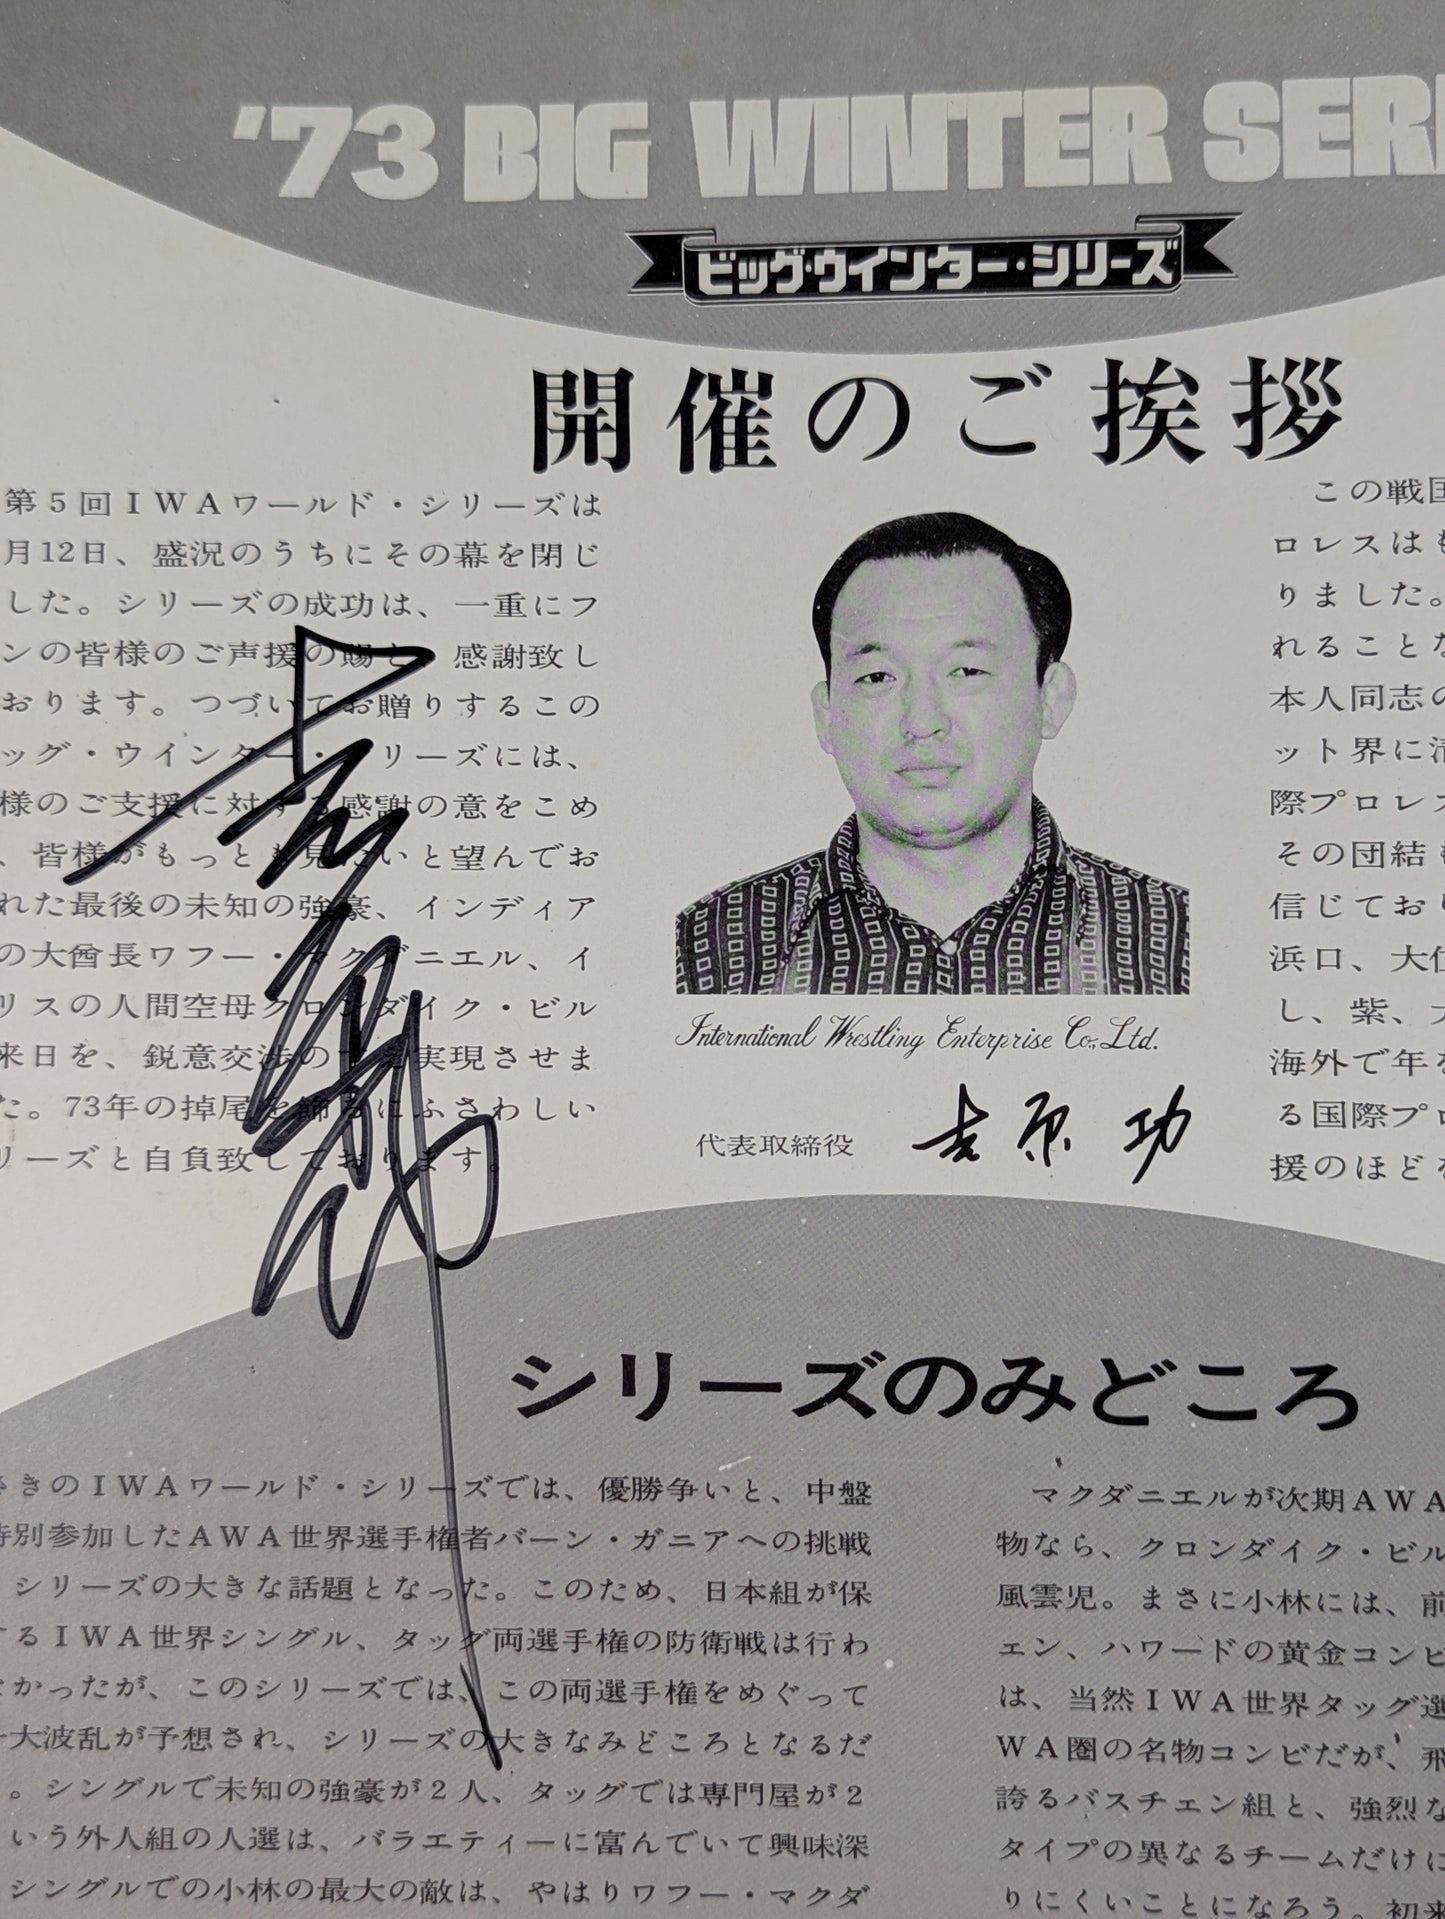 '73 BIG WINTER SERI
ビッグ・ウインター・シリーズ
開催のご挨拶
第5回IWAワールド・シリーズは
月12日、盛況のうちにその幕を閉じ
した。シリーズの成功は、一重にフ
ンの皆様のご声援の賜と、感謝致し
おります。つづいてお贈りするこの
ッグ・ウインター・シリーズには、
様のご支援に対する感謝の意をこめ
、皆様がもっとも見たいと望んでお
れた最後の未知の強豪、インディア
の大酋長ワフー・マクダニエル、イ
リスの人間空母クロンダイク・ビル
来日を、鋭意交渉のすえ実現させま
た。73年の掉尾を飾るにふさわしい
リーズと自負致しております。
International Wrestling Enterprise Co., Ltd.
代表取締役 吉原 功
この戦国
ロレスはも
りました。
れることな
本人同志の
ット界に清
際プロレス
その団結も
信じており
浜口、大位
し、紫、大
海外で年を
る国際プロ
援のほどを
シリーズのみどころ
さきのIWAワールド・シリーズでは、優勝争いと、中盤
特別参加したAWA世界選手権者バーン・ガニアへの挑戦
シリーズの大きな話題となった。このため、日本組が保
するIWA世界シングル、タッグ両選手権の防衛戦は行わ
なかったが、このシリーズでは、この両選手権をめぐって
大波乱が予想され、シリーズの大きなみどころとなるだ
。シングルで未知の強豪が2人、タッグでは専門屋が2
いう外人組の人選は、バラエティーに富んでいて興味深
シングルでの小林の最大の敵は、やはりワフー・マクダ
マクダニエルが次期AWA
物なら、クロンダイク・ビル
風雲児。まさに小林には、前
ェン、ハワードの黄金コンビ
は、当然IWA世界タッグ選
WA圏の名物コンビだが、飛
誇るバスチェン組と、強烈な
タイプの異なるチームだけに
りにくいことになろう。初来